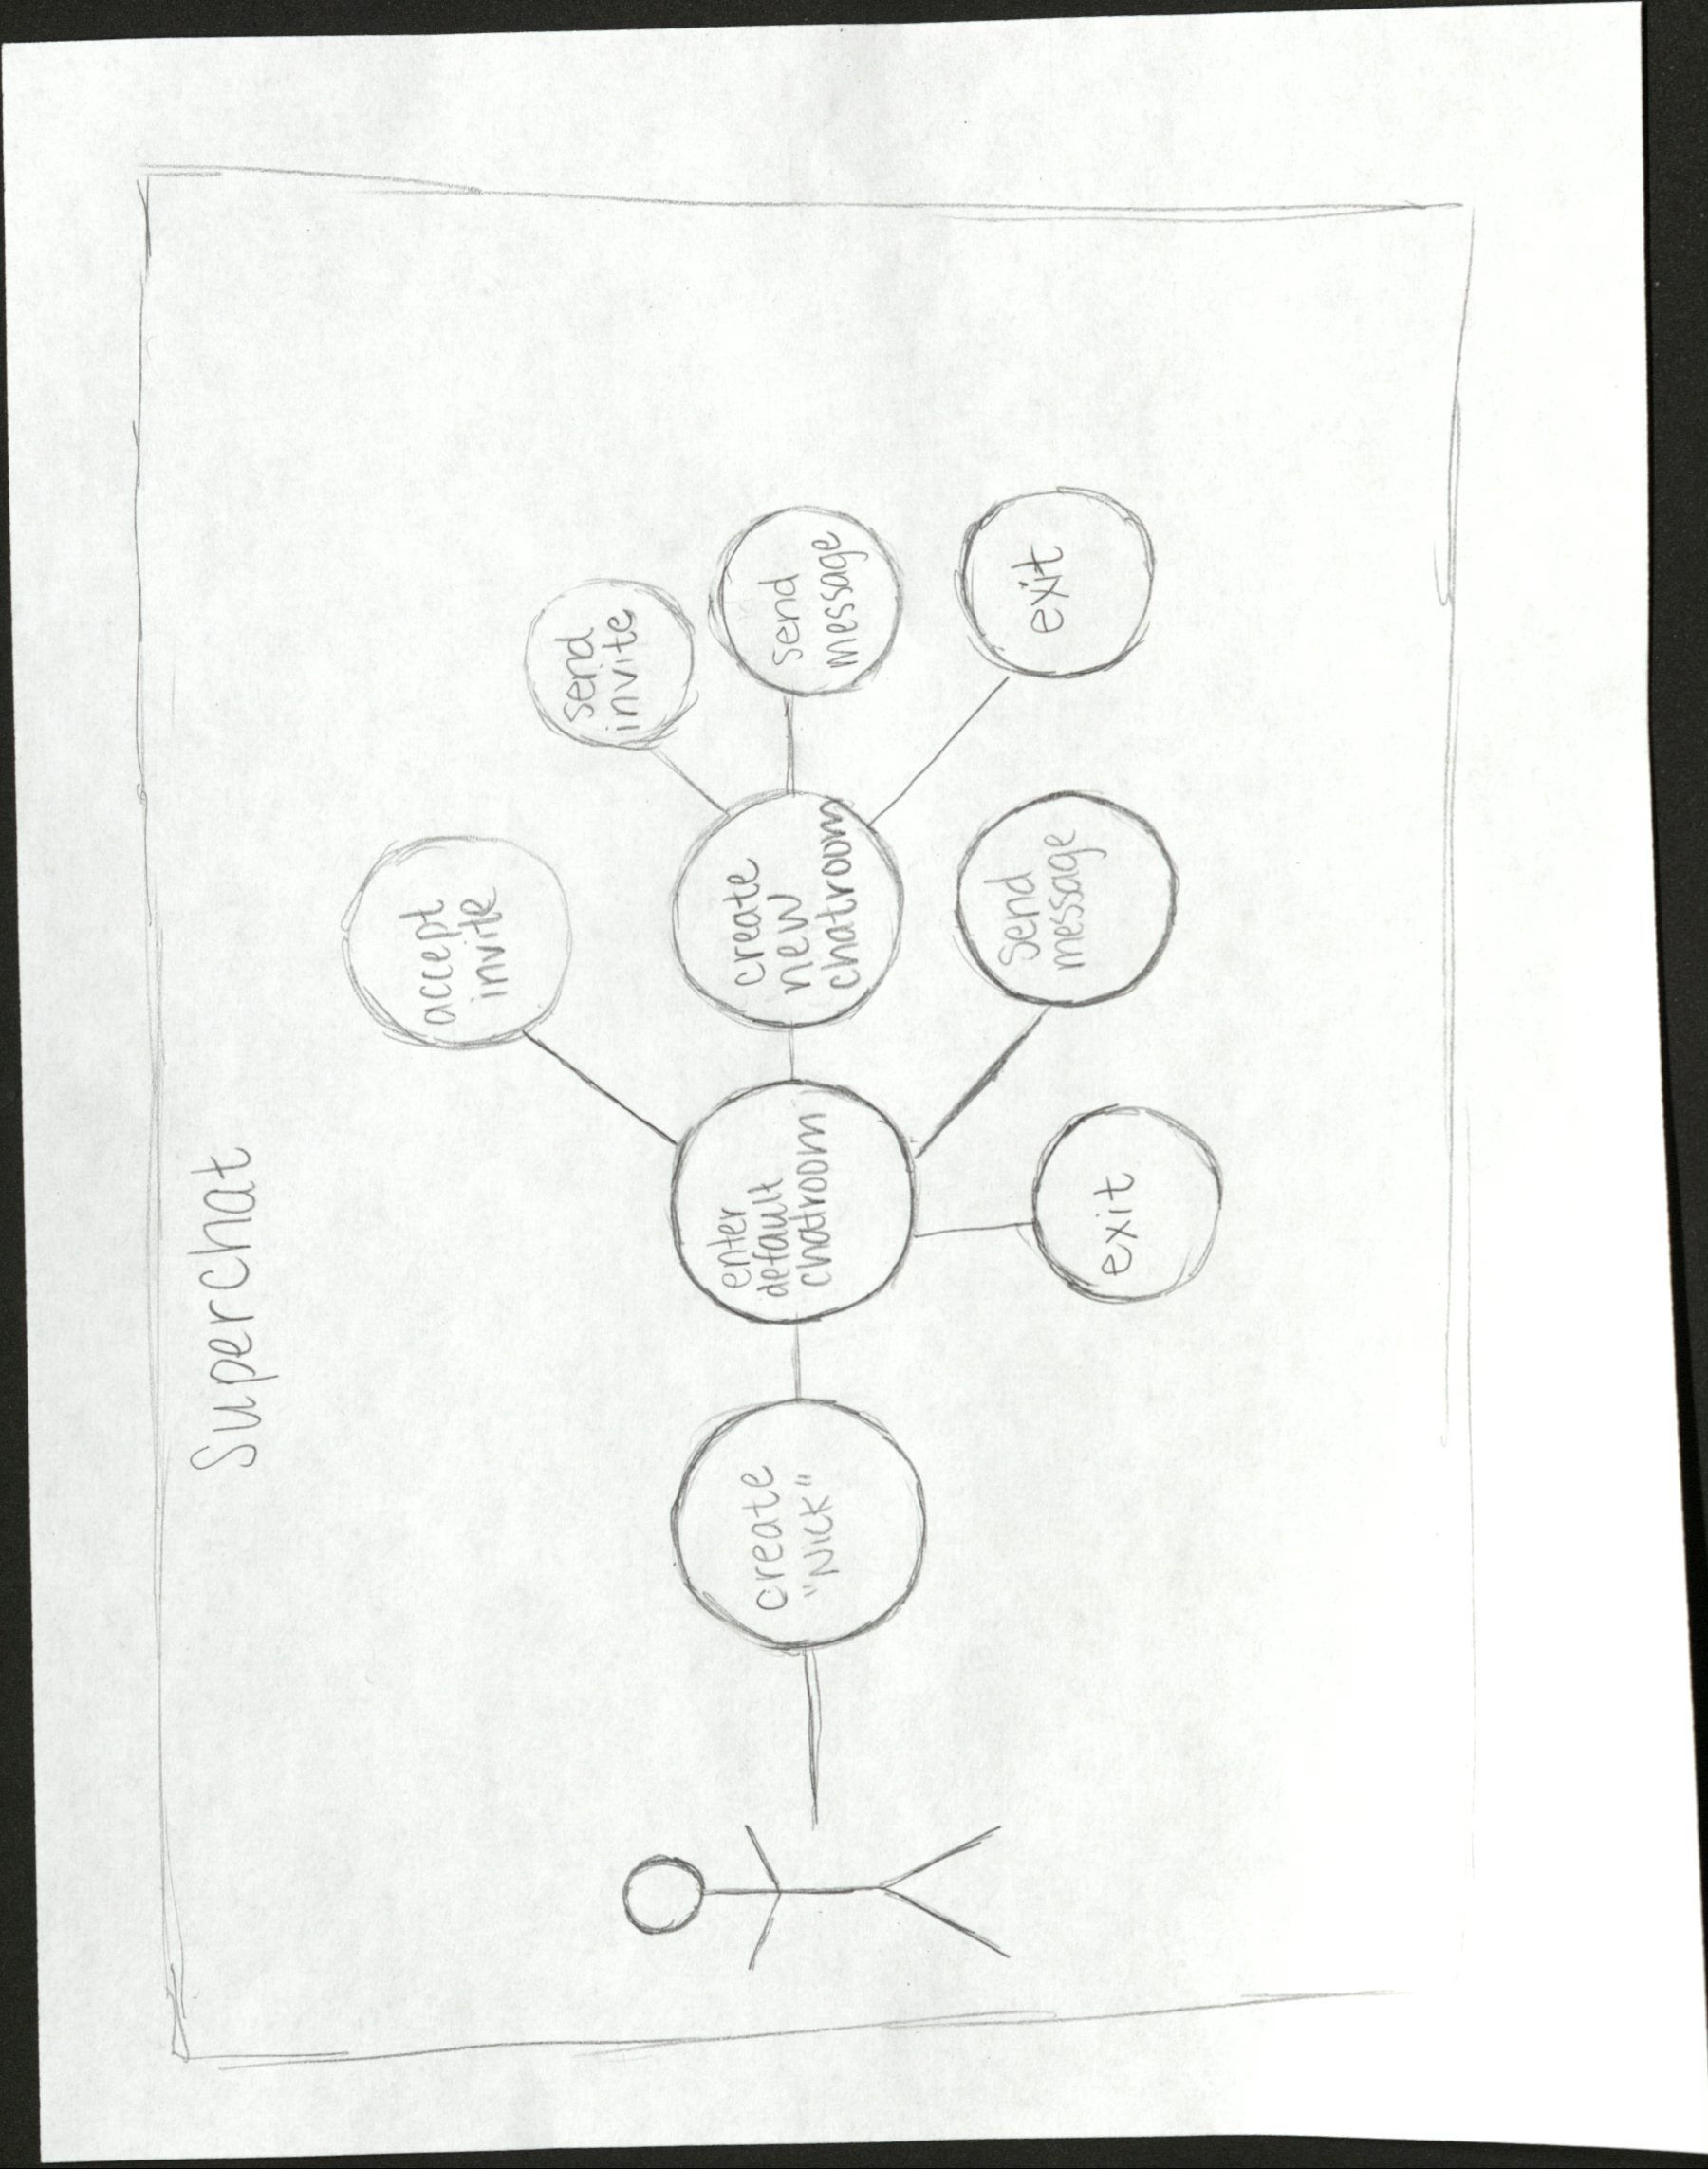 Superchat
create
"Nick"
enter
default
chatroom
accept
invite
create
new
chatroom
send
invite
send
message
exit
send
message
exit